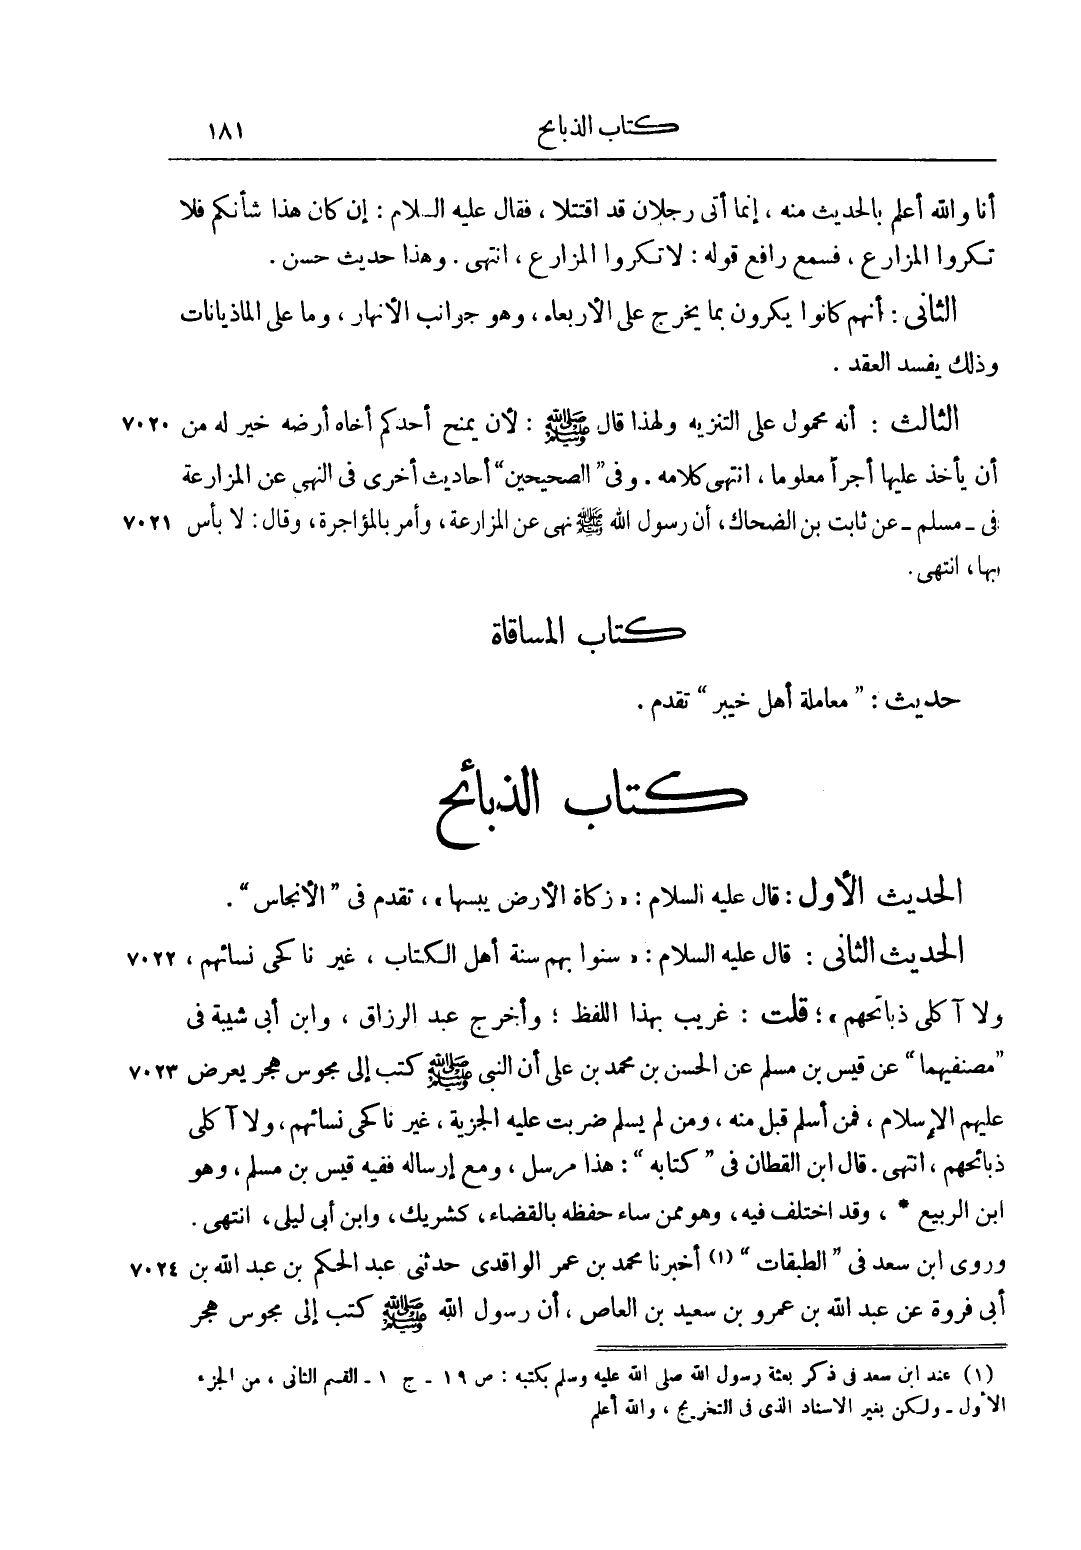 كتاب الذبائح ١٨١
أنا والله أعلم بالحديث منه ، إنما أتى رجلان قد اقتتلا ، فقال عليه السلام : إن كان هذا شأنكم فلا
تكروا المزارع ، فسمع رافع قوله : لا تكروا المزارع ، انتهى . وهذا حديث حسن .
الثانى : أنهم كانوا يكرون بما يخرج على الأربعاء ، وهو جوانب الأنهار ، وما على الماذيانات
وذلك يفسد العقد .
الثالث : أنه محمول على التنزيه ولهذا قال ﷺ : لأن يمنح أحدكم أخاه أرضه خير له من ٧٠٢٠
أن يأخذ عليها أجراً معلوما ، انتهى كلامه . وفى " الصحيحين " أحاديث أخرى فى النهى عن المزارعة
فى - مسلم - عن ثابت بن الضحاك ، أن رسول الله ﷺ نهى عن المزارعة ، وأمر بالمؤاجرة ، وقال : لا بأس ٧٠٢١
بها ، انتهى .
كتاب المساقاة
حديث : " معاملة أهل خيبر " تقدم .
كتاب الذبائح
الحديث الأول : قال عليه السلام : « زكاة الأرض يبسها » ، تقدم فى " الأنجاس " .
الحديث الثانى : قال عليه السلام : « سنوا بهم سنة أهل الكتاب ، غير ناكحى نسائهم ، ٧٠٢٢
ولا آكلى ذبائحهم » ؛ قلت : غريب بهذا اللفظ ؛ وأخرج عبد الرزاق ، وابن أبى شيبة فى
" مصنفيهما " عن قيس بن مسلم عن الحسن بن محمد بن على أن النبى ﷺ كتب إلى مجوس هجر يعرض ٧٠٢٣
عليهم الإسلام ، فمن أسلم قبل منه ، ومن لم يسلم ضربت عليه الجزية ، غير ناكحى نسائهم ، ولا آكلى
ذبائحهم ، انتهى . قال ابن القطان فى " كتابه " : هذا مرسل ، ومع إرساله ففيه قيس بن مسلم ، وهو
ابن الربيع * ، وقد اختلف فيه ، وهو ممن ساء حفظه بالقضاء ، كشريك ، وابن أبى ليلى ، انتهى .
وروى ابن سعد فى " الطبقات " (١) أخبرنا محمد بن عمر الواقدى حدثنى عبد الحكم بن عبد الله بن ٧٠٢٤
أبى فروة عن عبد الله بن عمرو بن سعيد بن العاص ، أن رسول الله ﷺ كتب إلى مجوس هجر
(١) عند ابن سعد فى ذكر بعثة رسول الله صلى الله عليه وسلم بكتبه : ص ١٩ - ج ١ - القسم الثانى ، من الجزء
الأول - ولكن بغير الاسناد الذى فى التخريج ، والله أعلم